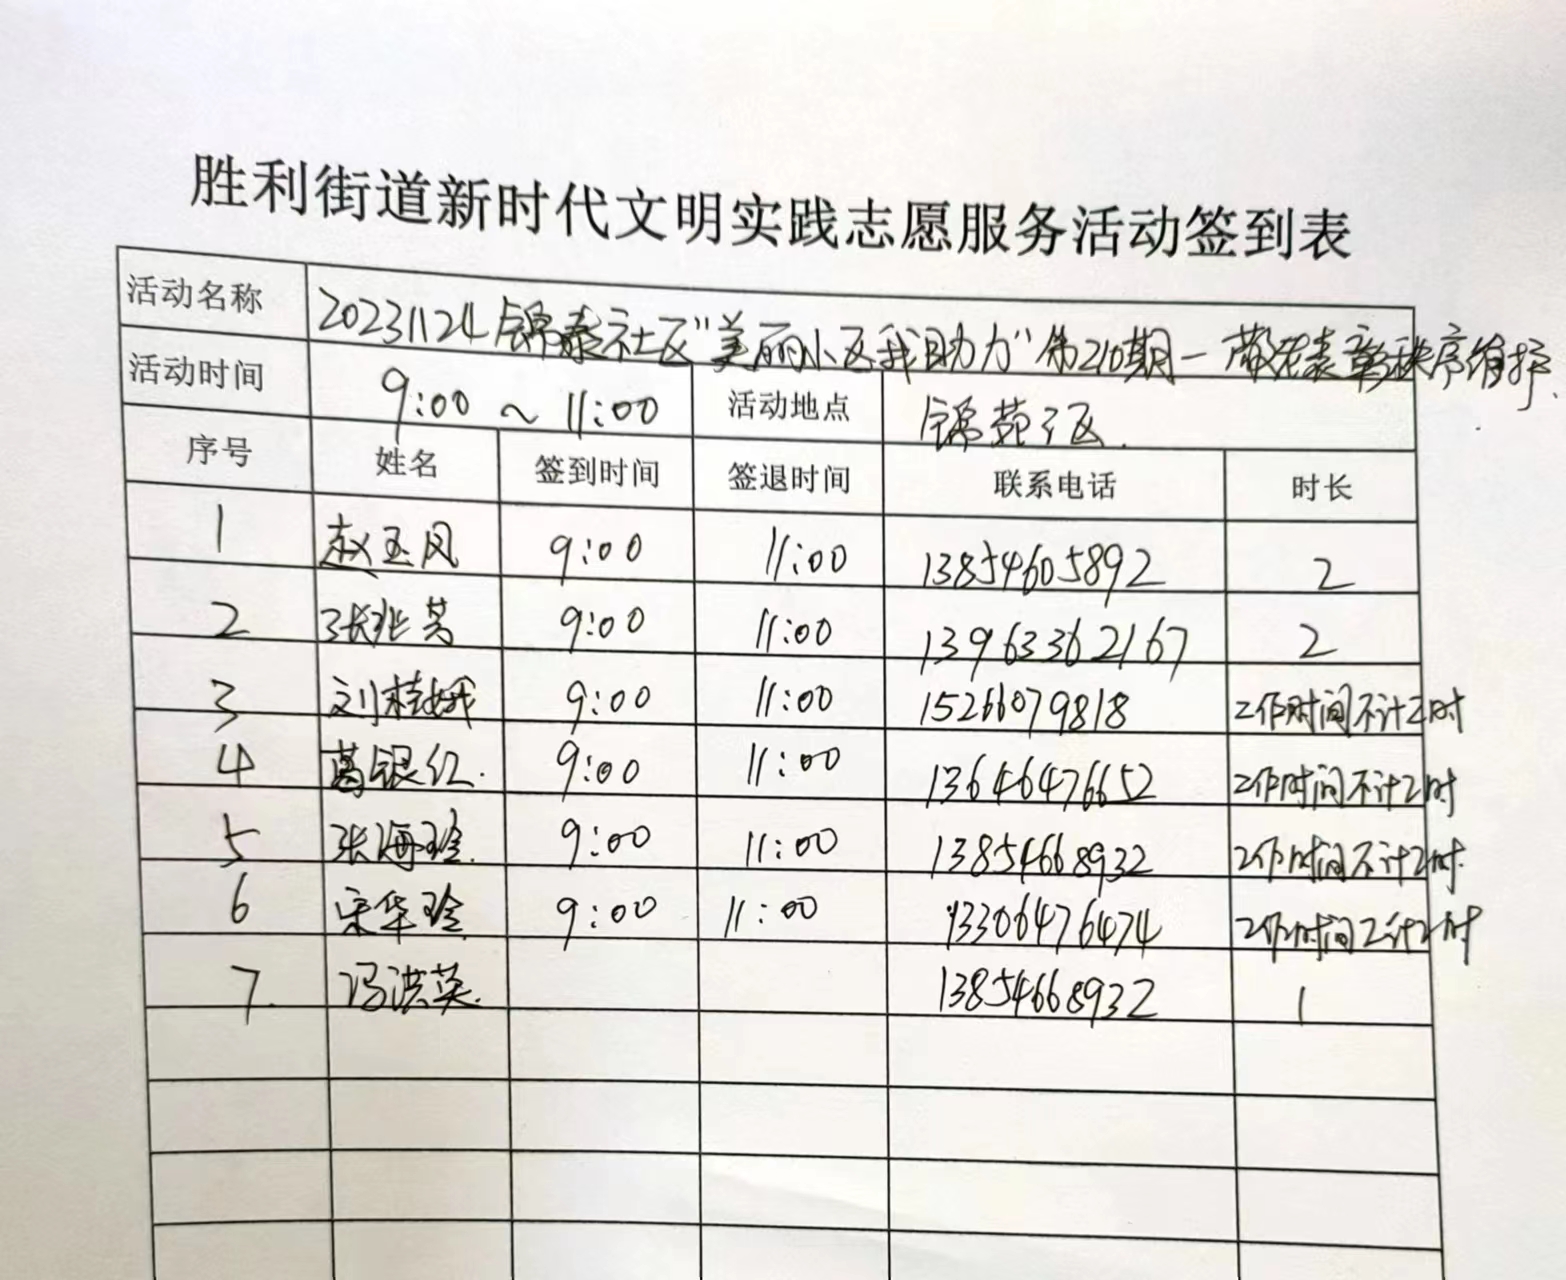 胜利街道新时代文明实践志愿服务活动签到表
活动名称 20231124锦泰社区"美丽小区我助力"第210期一敬老表彰秩序维护.
活动时间 9:00 ~ 11:00 活动地点 锦苑三区.
序号 姓名 签到时间 签退时间 联系电话 时长
1 赵玉凤 9:00 11:00 13854605892 2
2 张兆芸 9:00 11:00 13963362167 2
3 刘桂娥 9:00 11:00 15266079818 工作时间不计工时
4 葛银红. 9:00 11:00 13646476652 工作时间不计工时
5 张海玲. 9:00 11:00 13854668932 工作时间不计工时.
6 宋华玲 9:00 11:00 13306476474 工作时间不计工时
7. 冯洪英. 13854668932 1